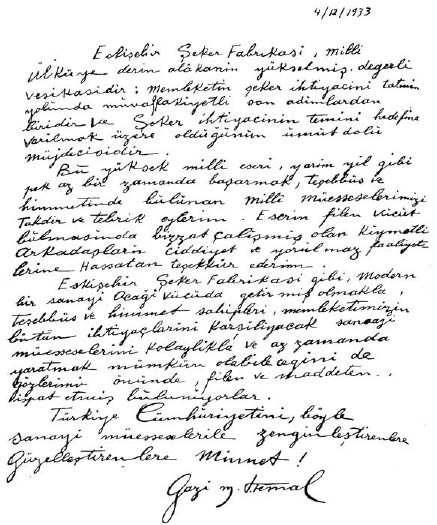 4/12/1933
Eskişehir Şeker Fabrikasi, milli
ülküye derin alâkanin yükselmiş, degerli
vesikasidir; memleketin şeker ihtiyacini tatmin
yolunda muvaffakiyetli son adimlardan
biridir ve Şeker ihtiyacinin temini hedefine
varilmak üzere olduğunun ümüt dolü
müjdecisidir.
Bu yüksek milli eseri, yarim yil gibi
pek az bir zamanda başarmak, teşebbüs ve
himmetinde bülünan milli müesseselerimizi
Takdir ve tebrik eylerim. Eserin filen vücüt
bülmasinda bizzat çalişmiş olan kiymetli
Arkadaşlarin ciddiyet ve yörülmaz faaliyet-
lerine Hassatan teşekkür ederim.
Eskişehir Şeker Fabrikasi gibi, Modern
bir sanayi Ocaği vücüda getirmiş olmakla
teşebbüs ve himmet sahipleri, memleketimizin
bütün ihtiyaçlarini karşiliyacak sanayi
müesseselerini kolaylikla ve az zamanda
yaratmak mümkün olabileceğini de
gözlerimiz önünde, filen ve maddeten
ispat etmiş bülünüyorlar.
Türkiye Cümhüriyetini, böyle
sanayi müesseselerile zenginleştirenlere
Güzelleştirenlere Minnet!
Gazi M. Kemal